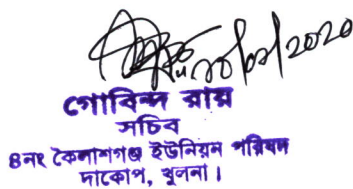 গোবিন্দ রায়
সচিব
৪নং কৈলাশগঞ্জ ইউনিয়ন পরিষদ
দাকোপ, খুলনা।